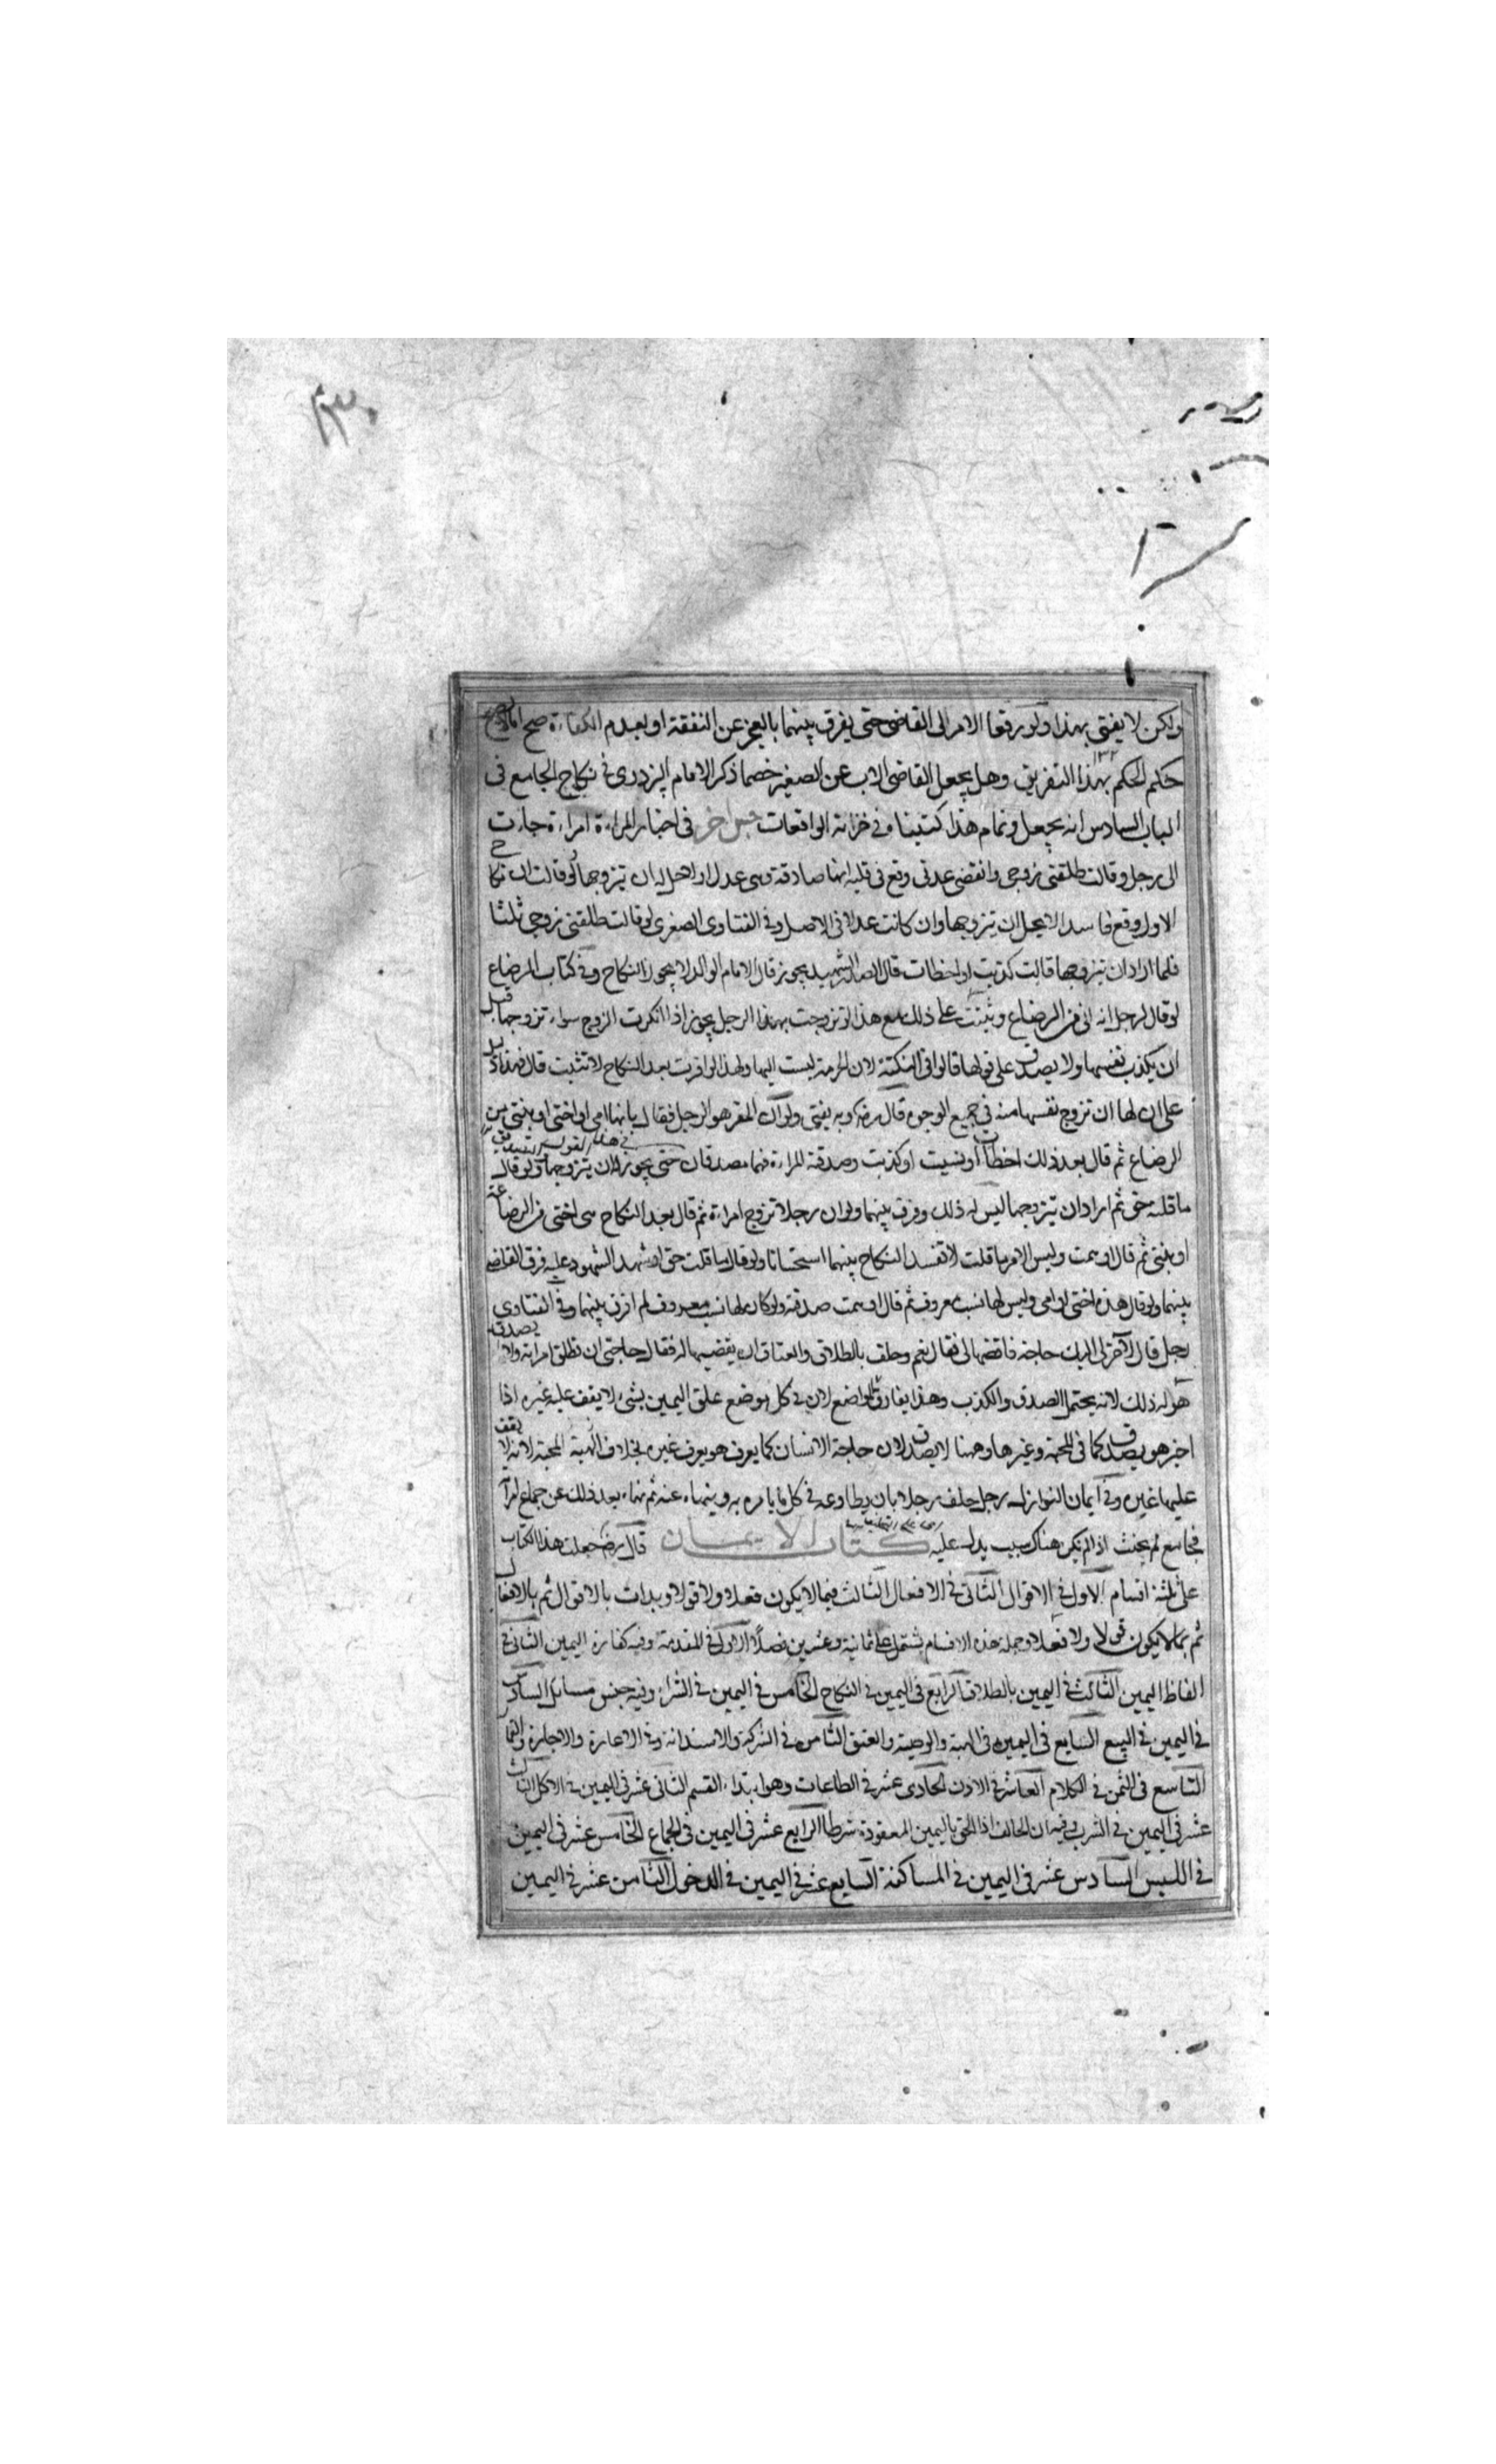 ١٣٠
ولكن لا يفتى بهذا ولو رفعا الامر الى القاضى حتى يفرق بينهما بالعجز عن النفقة او بعدم الكفاءة صح
حكم الحكم بهذا التفريق وهل يجعل القاضى الاب عن الصغير خصما ذكر الامام البزدوى فى نكاح الجامع فى
الباب السادس انه يجعل وتمام هذا كتبنا فى خزانة الواقعات جنس اخر فى اخبار المراءة امراءة جاءت
الى رجل وقالت طلقنى زوجى وانقضى عدتى وقع فى قلبه انها صادقة وهى عدل او لا حل له ان يتزوجها لو قالت ان نكاح
الاول وقع فاسدا لا يحل ان يتزوجها وان كانت عدلا فى الاصل وفى الفتاوى الصغرى لو قالت طلقنى زوجى ثلثا
فلما اراد ان يتزوجها قالت كذبت او اخطات قال الصدر الشهيد يجوز قال الامام الوالد لا يجوز النكاح وفى كتاب الرضاع
لو قال لرجل انه ابنى من الرضاع وثبتت على ذلك مع هذا لو تزوجت بهذا الرجل يجوز اذا انكرت الزوج سواء تزوجها قبل
ان يكذب نفسها ولا يصدق على قولها قالوا فى النكتة لان الحرمة ليست اليها ولهذا لو اقرت بعد النكاح لا تثبت قال فهذا دليل
على ان لها ان تزوج نفسها منه فى جميع الوجوه قال رضه وبه يفتى ولو ان المقر هو الرجل فقال بانها امى او اختى او بنتى من
الرضاع ثم قال بعد ذلك اخطات او نسيت او كذبت وصدقة المراءة فهما مصدقان حتى يجوز له ان يتزوجها ولو قال
ما قلته حق ثم اراد ان يتزوجها ليس له ذلك وفرق بينهما ولو ان رجلا تزوج امراءة ثم قال بعد النكاح هى اختى من الرضاعة
او بنتى ثم قال اوهمت وليس الامر ما قلت لا تفسد النكاح بينهما استحسانا ولو قال ما قلت حق او شهد الشهود عليه فرق القاضى
بينهما ولو قال هذه اختى او امى وليس لها نسب معروف ثم قال اوهمت صدقته ولو كان لها نسب معروف لم افرق بينهما وفى الفتاوى
رجل قال لآخر لى اليك حاجة فاقضها لى فقال نعم وحلف بالطلاق والعتاق ان يقضيها له فقال حاجتى ان تطلق امراته ولا يصدق
هو له ذلك لانه يحتمل الصدق والكذب وهذا يفارق المواضع لان فى كل موضع علق اليمين بشىء لا يقف عليه غيره اذا
اخبر هو يصدق كما فى المحبة وغيرها وههنا لا يصدق لان حاجة الانسان كما يعرف هو يعرف غيره بخلاف المحبة لانه لا يقف
عليها غيره وفى ايمان النوازل رجل حلف رجلا بان يطاوعه فى كل ما يامره به وينهاه عنه ثم نهاه بعد ذلك عن جماع امراته
فجامع لم يحنث اذا لم يكن هناك سبب يدل عليه كتاب الايمان قال رضه جعلت هذا الكتاب
على ثلثة اقسام الاول فى الاقوال الثانى فى الافعال الثالث فيما لا يكون فعلا ولا قولا وبدات بالاقوال ثم بالافعال
ثم بما لا يكون قولا ولا فعلا وجملة هذه الاقسام يشتمل على ثمانية وعشرين فصلا الاول فى المقدمة وفيه كفارة اليمين الثانى فى
الفاظ اليمين الثالث فى اليمين بالطلاق الرابع فى اليمين فى النكاح الخامس فى اليمين فى الشراء وفيه جنس مسائل السادس
فى اليمين فى البيع السابع فى اليمين فى الهبة والوصية والعتق الثامن فى الشركة والاستدانة وفى الاعارة والاجارة والقمار
التاسع فى الثمن فى الكلام العاشر فى الاذن الحادى عشر فى الطاعات وهو ابتداء القسم الثانى عشر فى اليمين فى الاكل الثالث
عشر فى اليمين فى الشرب وفيه ان الحالف اذا الحق باليمين المعقودة شرطا الرابع عشر فى اليمين فى الجماع الخامس عشر فى اليمين
فى اللبس السادس عشر فى اليمين فى المساكنة السابع عشر فى اليمين فى الدخول الثامن عشر فى اليمين